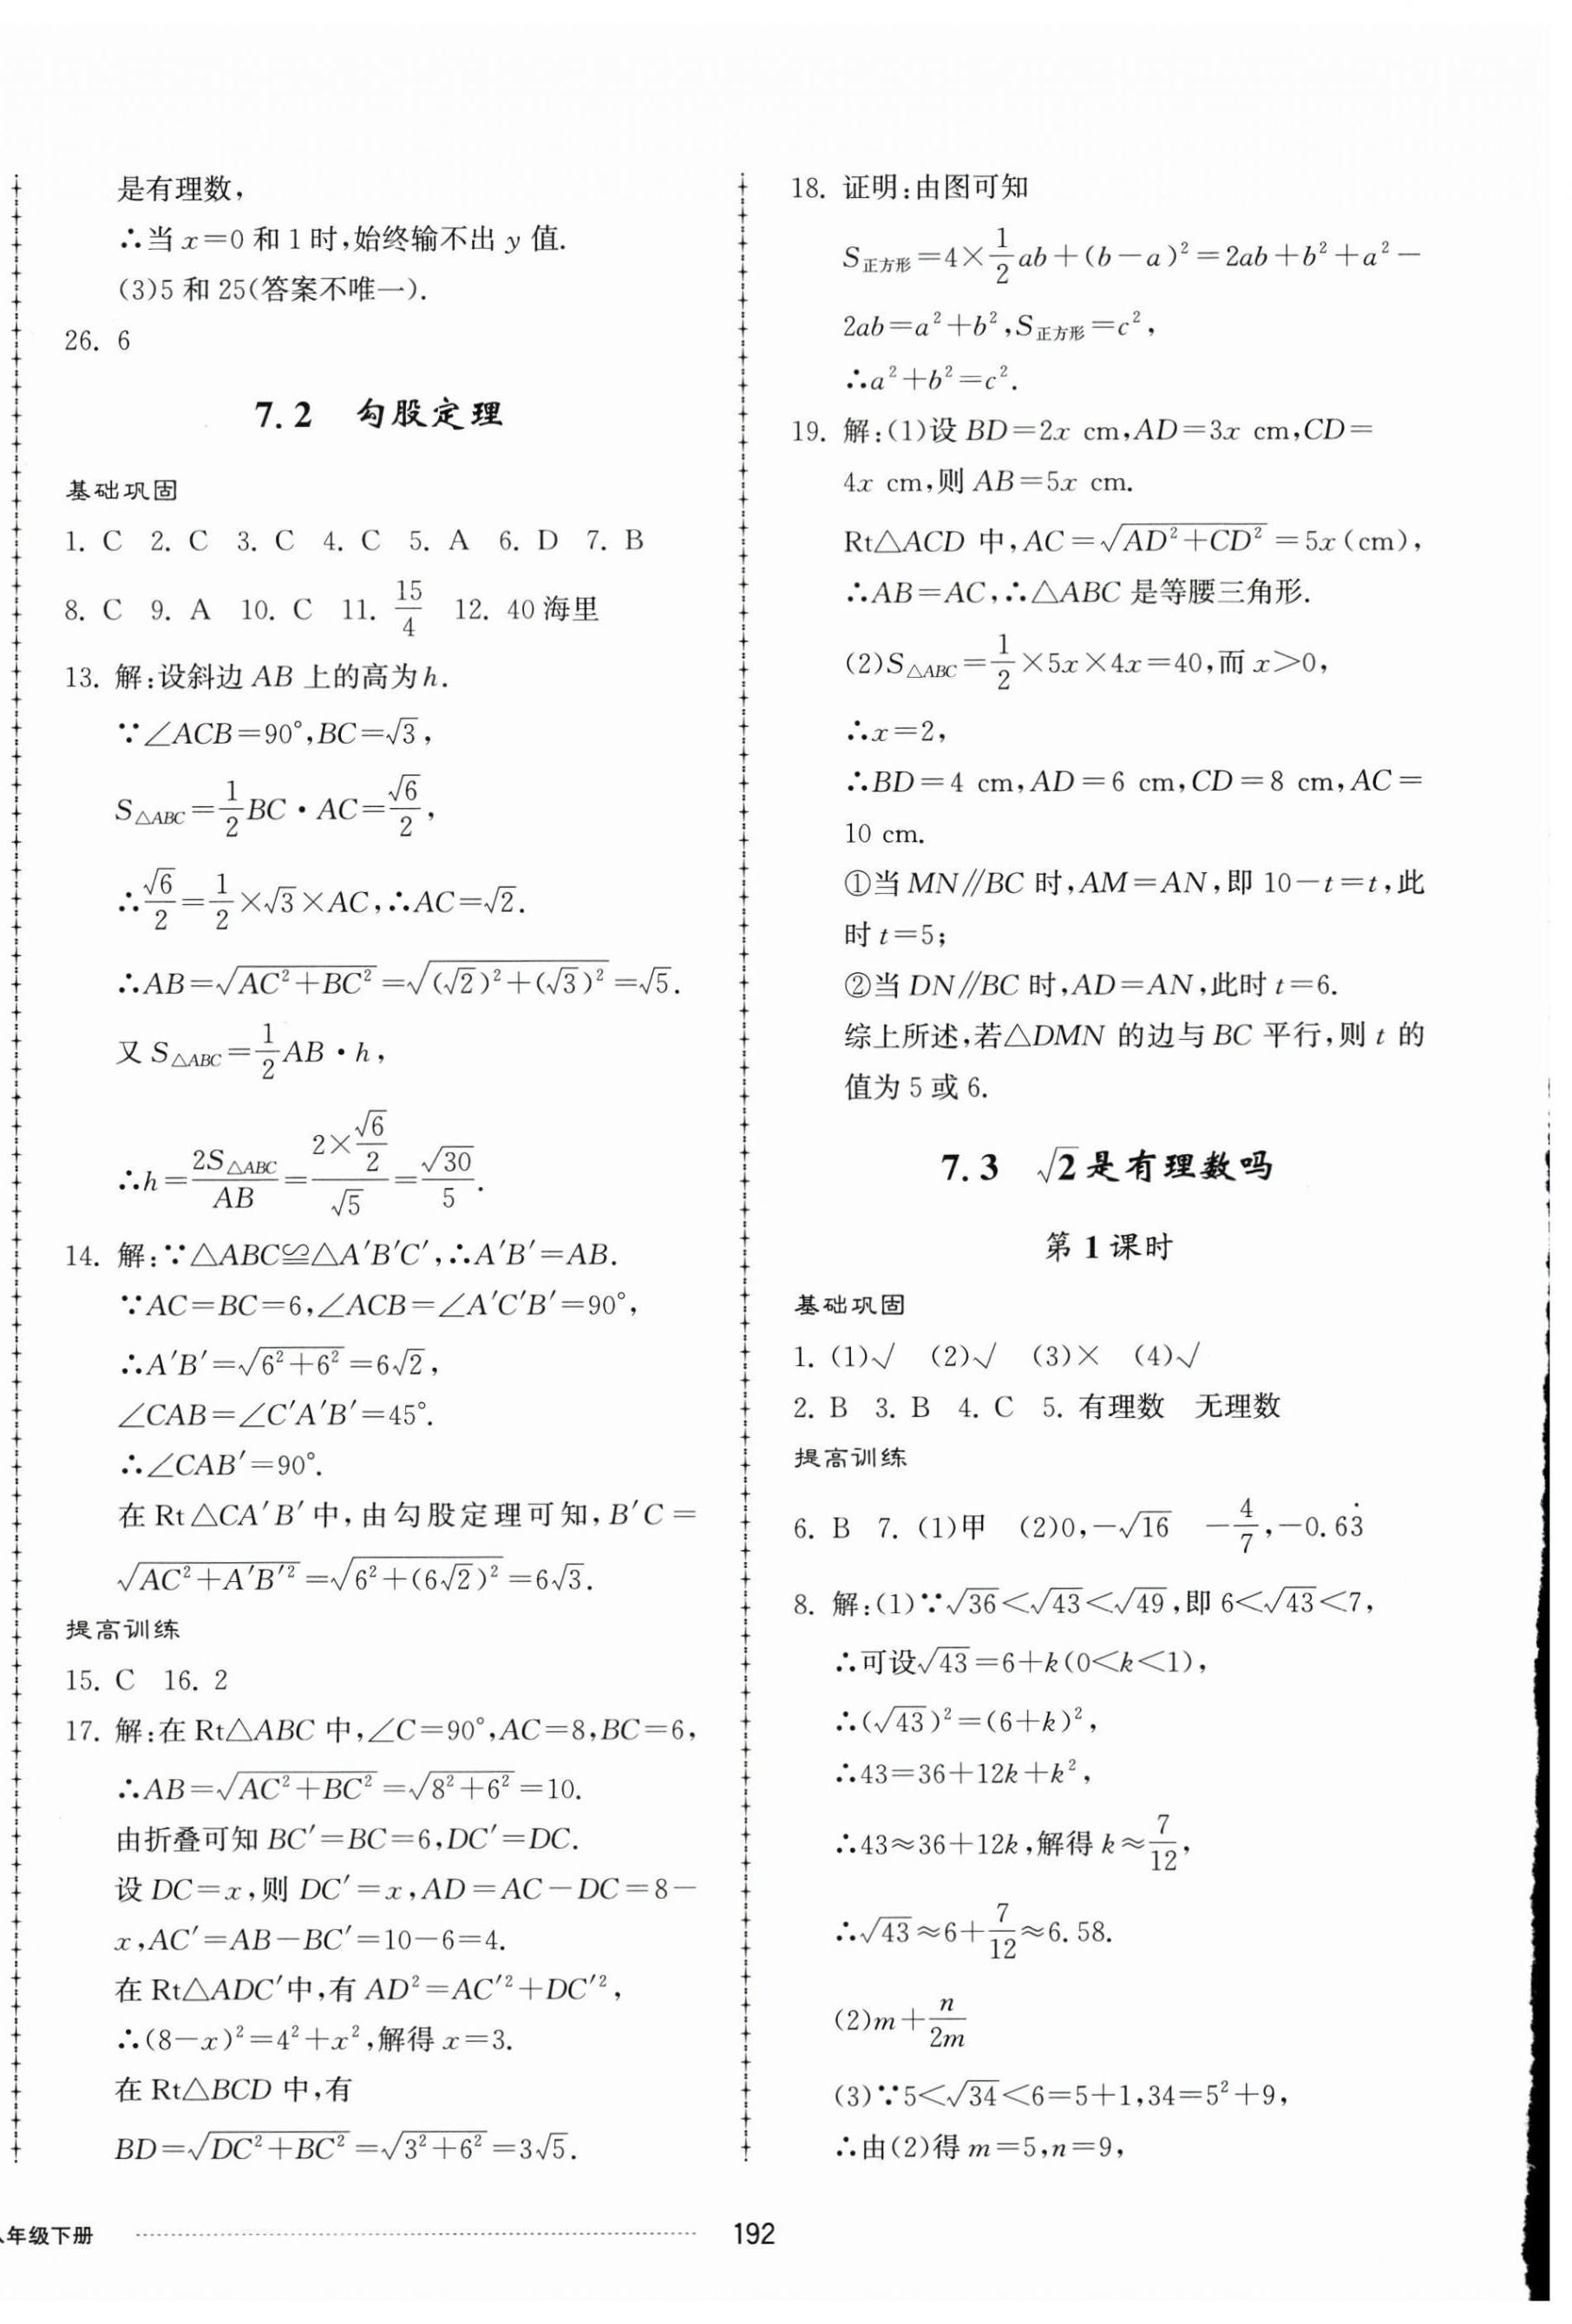 是有理数,
∴当 x=0 和 1 时,始终输不出 y 值.
(3)5 和 25(答案不唯一).
26. 6
7.2 勾股定理
基础巩固
1. C 2. C 3. C 4. C 5. A 6. D 7. B
8. C 9. A 10. C 11. 15/4 12. 40 海里
13. 解:设斜边 AB 上的高为 h.
∵∠ACB=90°,BC=√3,
S△ABC=1/2 BC·AC=√6/2,
∴√6/2=1/2×√3×AC,∴AC=√2.
∴AB=√(AC²+BC²)=√((√2)²+(√3)²)=√5.
又 S△ABC=1/2 AB·h,
∴h=2S△ABC/AB=(2×√6/2)/√5=√30/5.
14. 解:∵△ABC≌△A′B′C′,∴A′B′=AB.
∵AC=BC=6,∠ACB=∠A′C′B′=90°,
∴A′B′=√(6²+6²)=6√2,
∠CAB=∠C′A′B′=45°.
∴∠CAB′=90°.
在 Rt△CA′B′中,由勾股定理可知,B′C=
√(AC²+A′B′²)=√(6²+(6√2)²)=6√3.
提高训练
15. C 16. 2
17. 解:在 Rt△ABC 中,∠C=90°,AC=8,BC=6,
∴AB=√(AC²+BC²)=√(8²+6²)=10.
由折叠可知 BC′=BC=6,DC′=DC.
设 DC=x,则 DC′=x,AD=AC-DC=8-
x,AC′=AB-BC′=10-6=4.
在 Rt△ADC′中,有 AD²=AC′²+DC′²,
∴(8-x)²=4²+x²,解得 x=3.
在 Rt△BCD 中,有
BD=√(DC²+BC²)=√(3²+6²)=3√5.
18. 证明:由图可知
S正方形=4×1/2 ab+(b-a)²=2ab+b²+a²-
2ab=a²+b²,S正方形=c²,
∴a²+b²=c².
19. 解:(1)设 BD=2x cm,AD=3x cm,CD=
4x cm,则 AB=5x cm.
Rt△ACD 中,AC=√(AD²+CD²)=5x(cm),
∴AB=AC,∴△ABC 是等腰三角形.
(2)S△ABC=1/2×5x×4x=40,而 x>0,
∴x=2,
∴BD=4 cm,AD=6 cm,CD=8 cm,AC=
10 cm.
①当 MN∥BC 时,AM=AN,即 10-t=t,此
时 t=5;
②当 DN∥BC 时,AD=AN,此时 t=6.
综上所述,若△DMN 的边与 BC 平行,则 t 的
值为 5 或 6.
7.3 √2是有理数吗
第 1 课时
基础巩固
1. (1)√ (2)√ (3)× (4)√
2. B 3. B 4. C 5. 有理数 无理数
提高训练
6. B 7. (1)甲 (2)0,-√16 -4/7,-0.63̇
8. 解:(1)∵√36<√43<√49,即 6<√43<7,
∴可设√43=6+k(0<k<1),
∴(√43)²=(6+k)²,
∴43=36+12k+k²,
∴43≈36+12k,解得 k≈7/12,
∴√43≈6+7/12≈6.58.
(2)m+n/2m
(3)∵5<√34<6=5+1,34=5²+9,
∴由(2)得 m=5,n=9,
年级下册
192